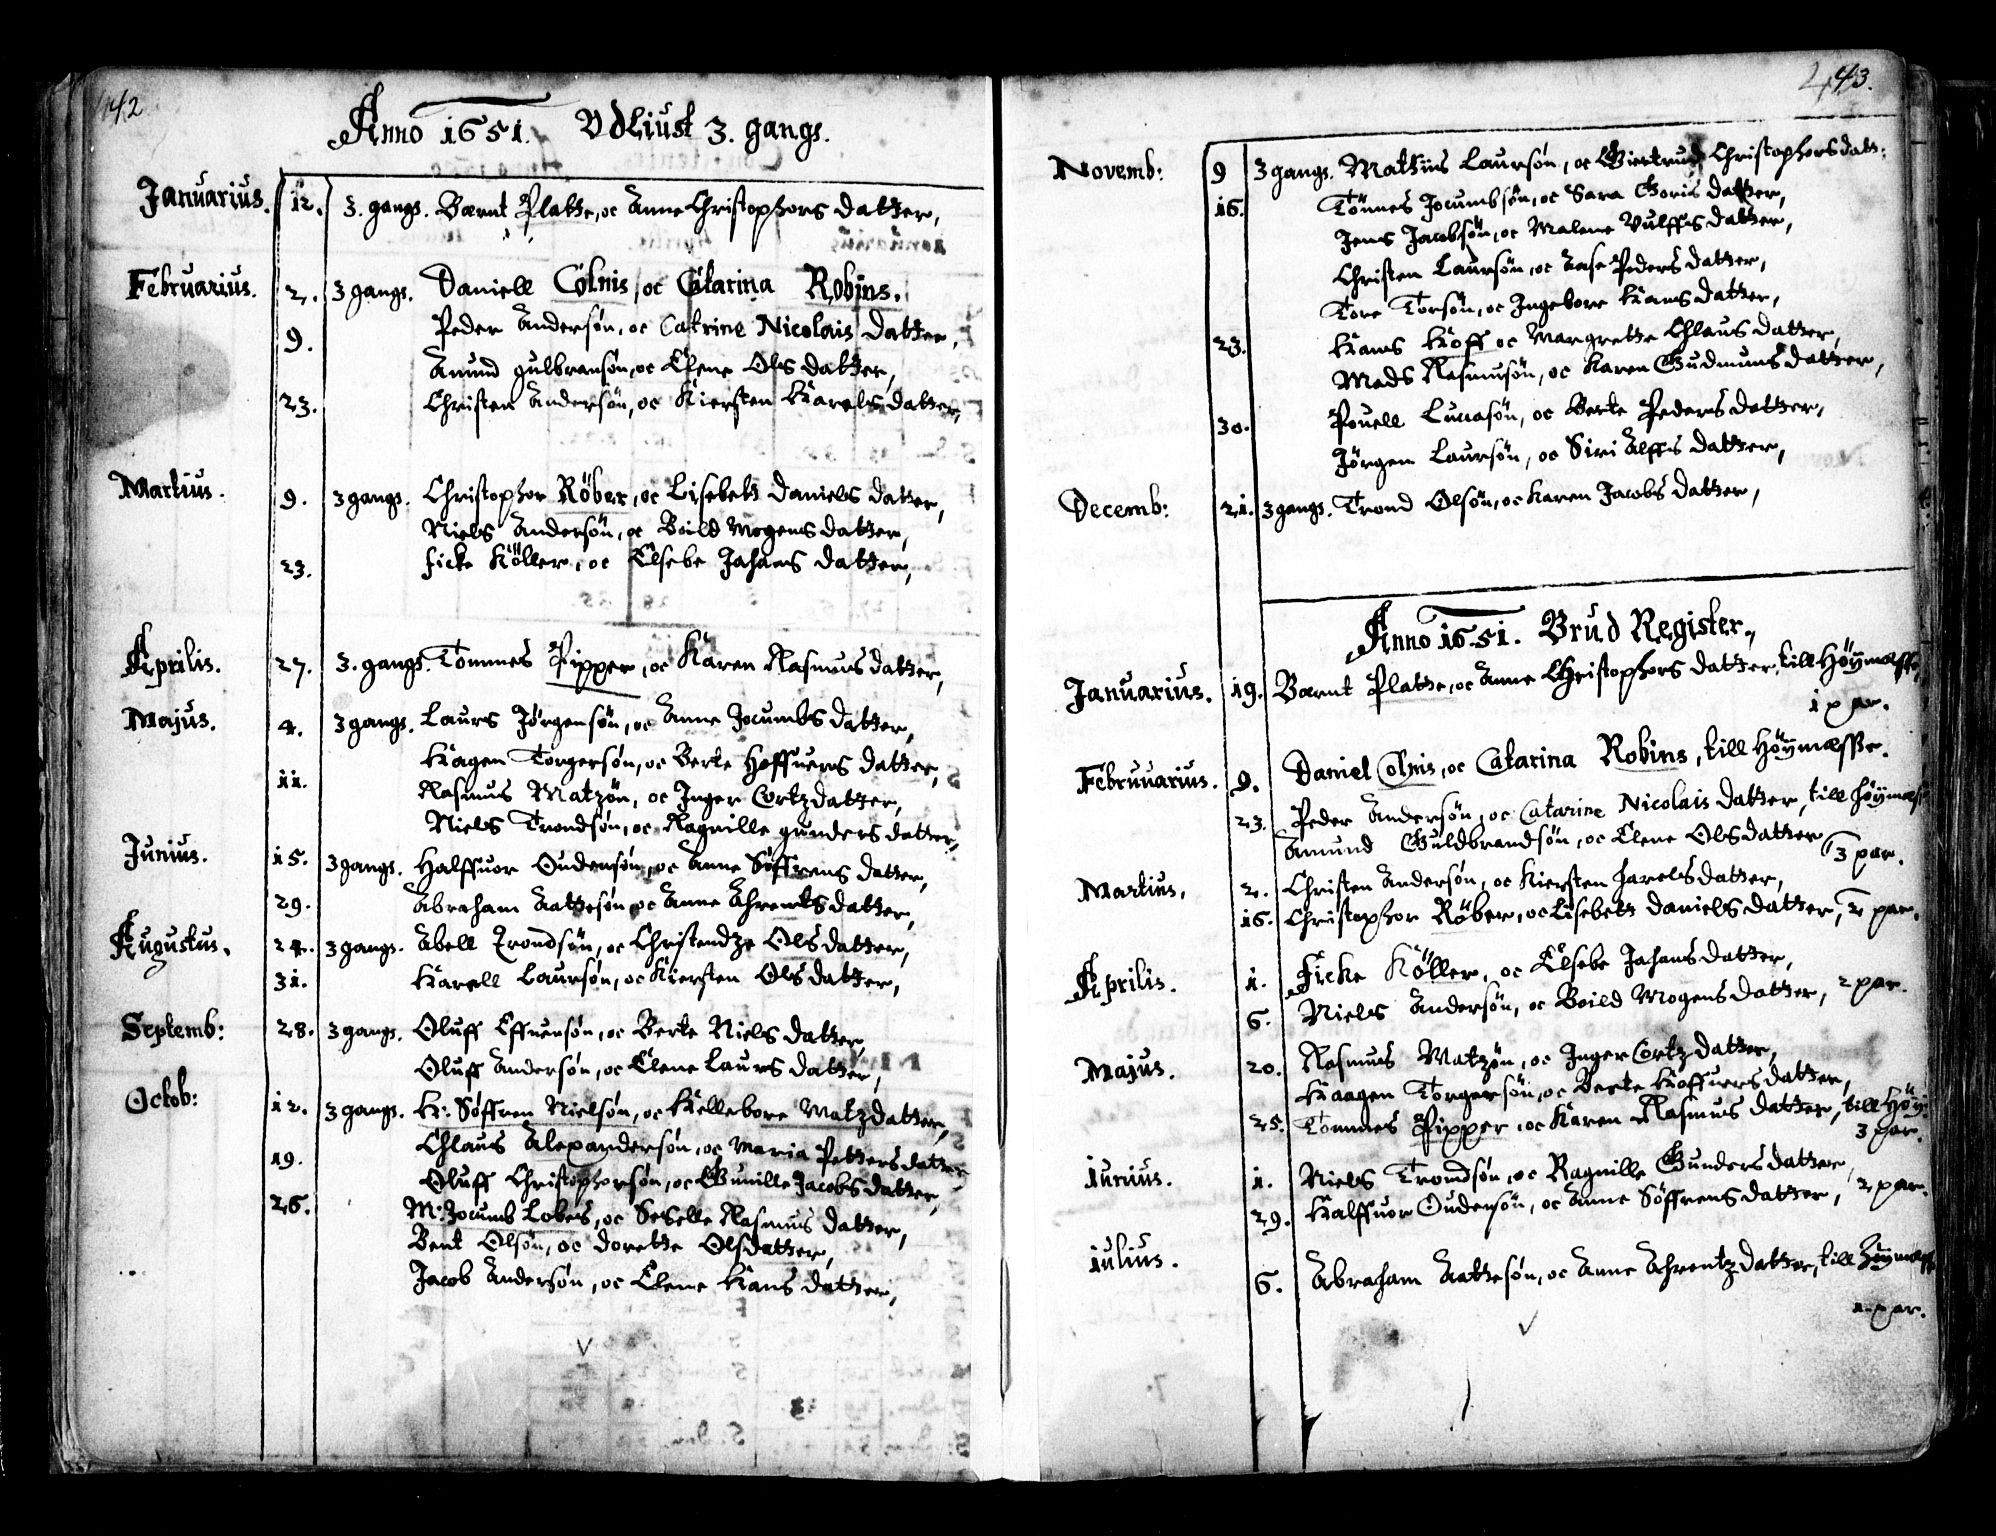 142
Anno 1651. Vdliust 3. gangs.
Januarius. 12. 3. gangs. Bærnt Platte, oc Anne Christophors datter,
Februarius. 2. 3 gangs. Daniell Colnis, oc Catarina Robins.
9. Peder Andersøn, oc Catrine Nicolais datter,
Amund gulbransøn, oc Elene Ols datter,
23. Christen Andersøn, oc Kiersten Harels datter,
Martius. 9. 3 gangs. Christophor Röber, oc Lisebett Daniels datter,
Niels Andersøn, oc Boild Mogens datter,
23. ficke Köller, oc Elsebe Johans datter,
Aprilis. 27. 3. gangs. Tommes Pipper, oc Karen Rasmus datter,
Majus. 4. 3 gangs. Laurs Jörgensøn, oc Anne Jocumbs datter,
Haagen Torgersøn, oc Berte Hoffuers datter,
11. Rasmus Matzøn, oc Inger Cortz datter,
Niels Trondsøn, oc Ragnille gunders datter,
Junius. 15. 3 gangs. Halffuor Oudensøn, oc Anne Söffrens datter,
29. Abraham Aattesøn, oc Anne Ahrentsdatter,
Augustus. 24. 3 gangs. Abell Trondsøn, oc Christendze Ols datter,
31. Harell Laursøn, oc Kiersten Ols datter,
Septemb: 28. 3 gangs. Oluff Effuensøn, oc Berte Niels datter,
Oluff Andersøn, oc Elene Laurs datter,
Octob: 12. 3 gangs. H: Söffren Nielsøn, oc Hellebore Matzdatter,
19. Chlaus Alexandersøn, oc Maria Petters datter
Oluff Christophorsøn, oc Gunille Jacobs datter,
26. M: Jocumb Lobes, oc Seselle Rasmus datter,
Bent Olsøn, oc dorette Olsdatter,
Jacob Andersøn, oc Elene Hans datter,
143.
Novemb: 9 3 gangs. Mattiis Laursøn, oc Giertrud Christophorsdatt:
16. Tönnes Jocumbsøn, oc Sara Goris datter,
Jens Jacobsøn, oc Malene Vulffs datter,
Christen Laursøn, oc Aase Peders datter,
Tore Torsøn, oc Ingebore Hans datter,
23. Hans Hoff oc Margrette Chlaus datter,
Mads Rasmusøn, oc Karen Gudmunsdatter,
30. Pouell Lucasøn, oc Berte Peders datter,
Jørgen Laursøn, oc Siri Alffs datter,
Decemb: 21. 3 gangs. Trond Olsøn, oc Karen Jacobs datter,
Anno 1651. Brud Register.
Januarius. 19. Bærnt Platte, oc Anne Christophors datter, till Höymæsse,
1 par.
Februuarius. 9. Daniel Colnis, oc Catarina Robins, till Höymæsse.
23. Peder Andersøn, oc Catarine Nicolais datter, till höymæs
Amund Guldbrandsøn, oc Elene Ols datter 3 par.
Martius. 2. Christen Andersøn, oc Kiersten Harelsdatter,
16. Christophor Röber, oc Lisebett daniels datter, 2 par.
Aprilis. 1. Ficke Köller, oc Elsebe Johansdatter,
6. Niels Andersøn, oc Boild Mogens datter, 2 par.
Majus. 20. Rasmus Matzøn, oc Inger Cortz datter,
Haagen Torgersøn, oc Berte Hoffuersdatter,
25. Tommes Pipper, oc Karen Rasmus datter, till Höy
3 par.
iunius. 1. Niels Trondsøn, oc Ragnille Gundersdatter,
29. Halffuor Oudensøn, oc Anne Söffrens datter, 2 par.
iulius. 6. Abraham Aattesøn, oc Anne Ahrentzdatter, till Höymæss
1. par.